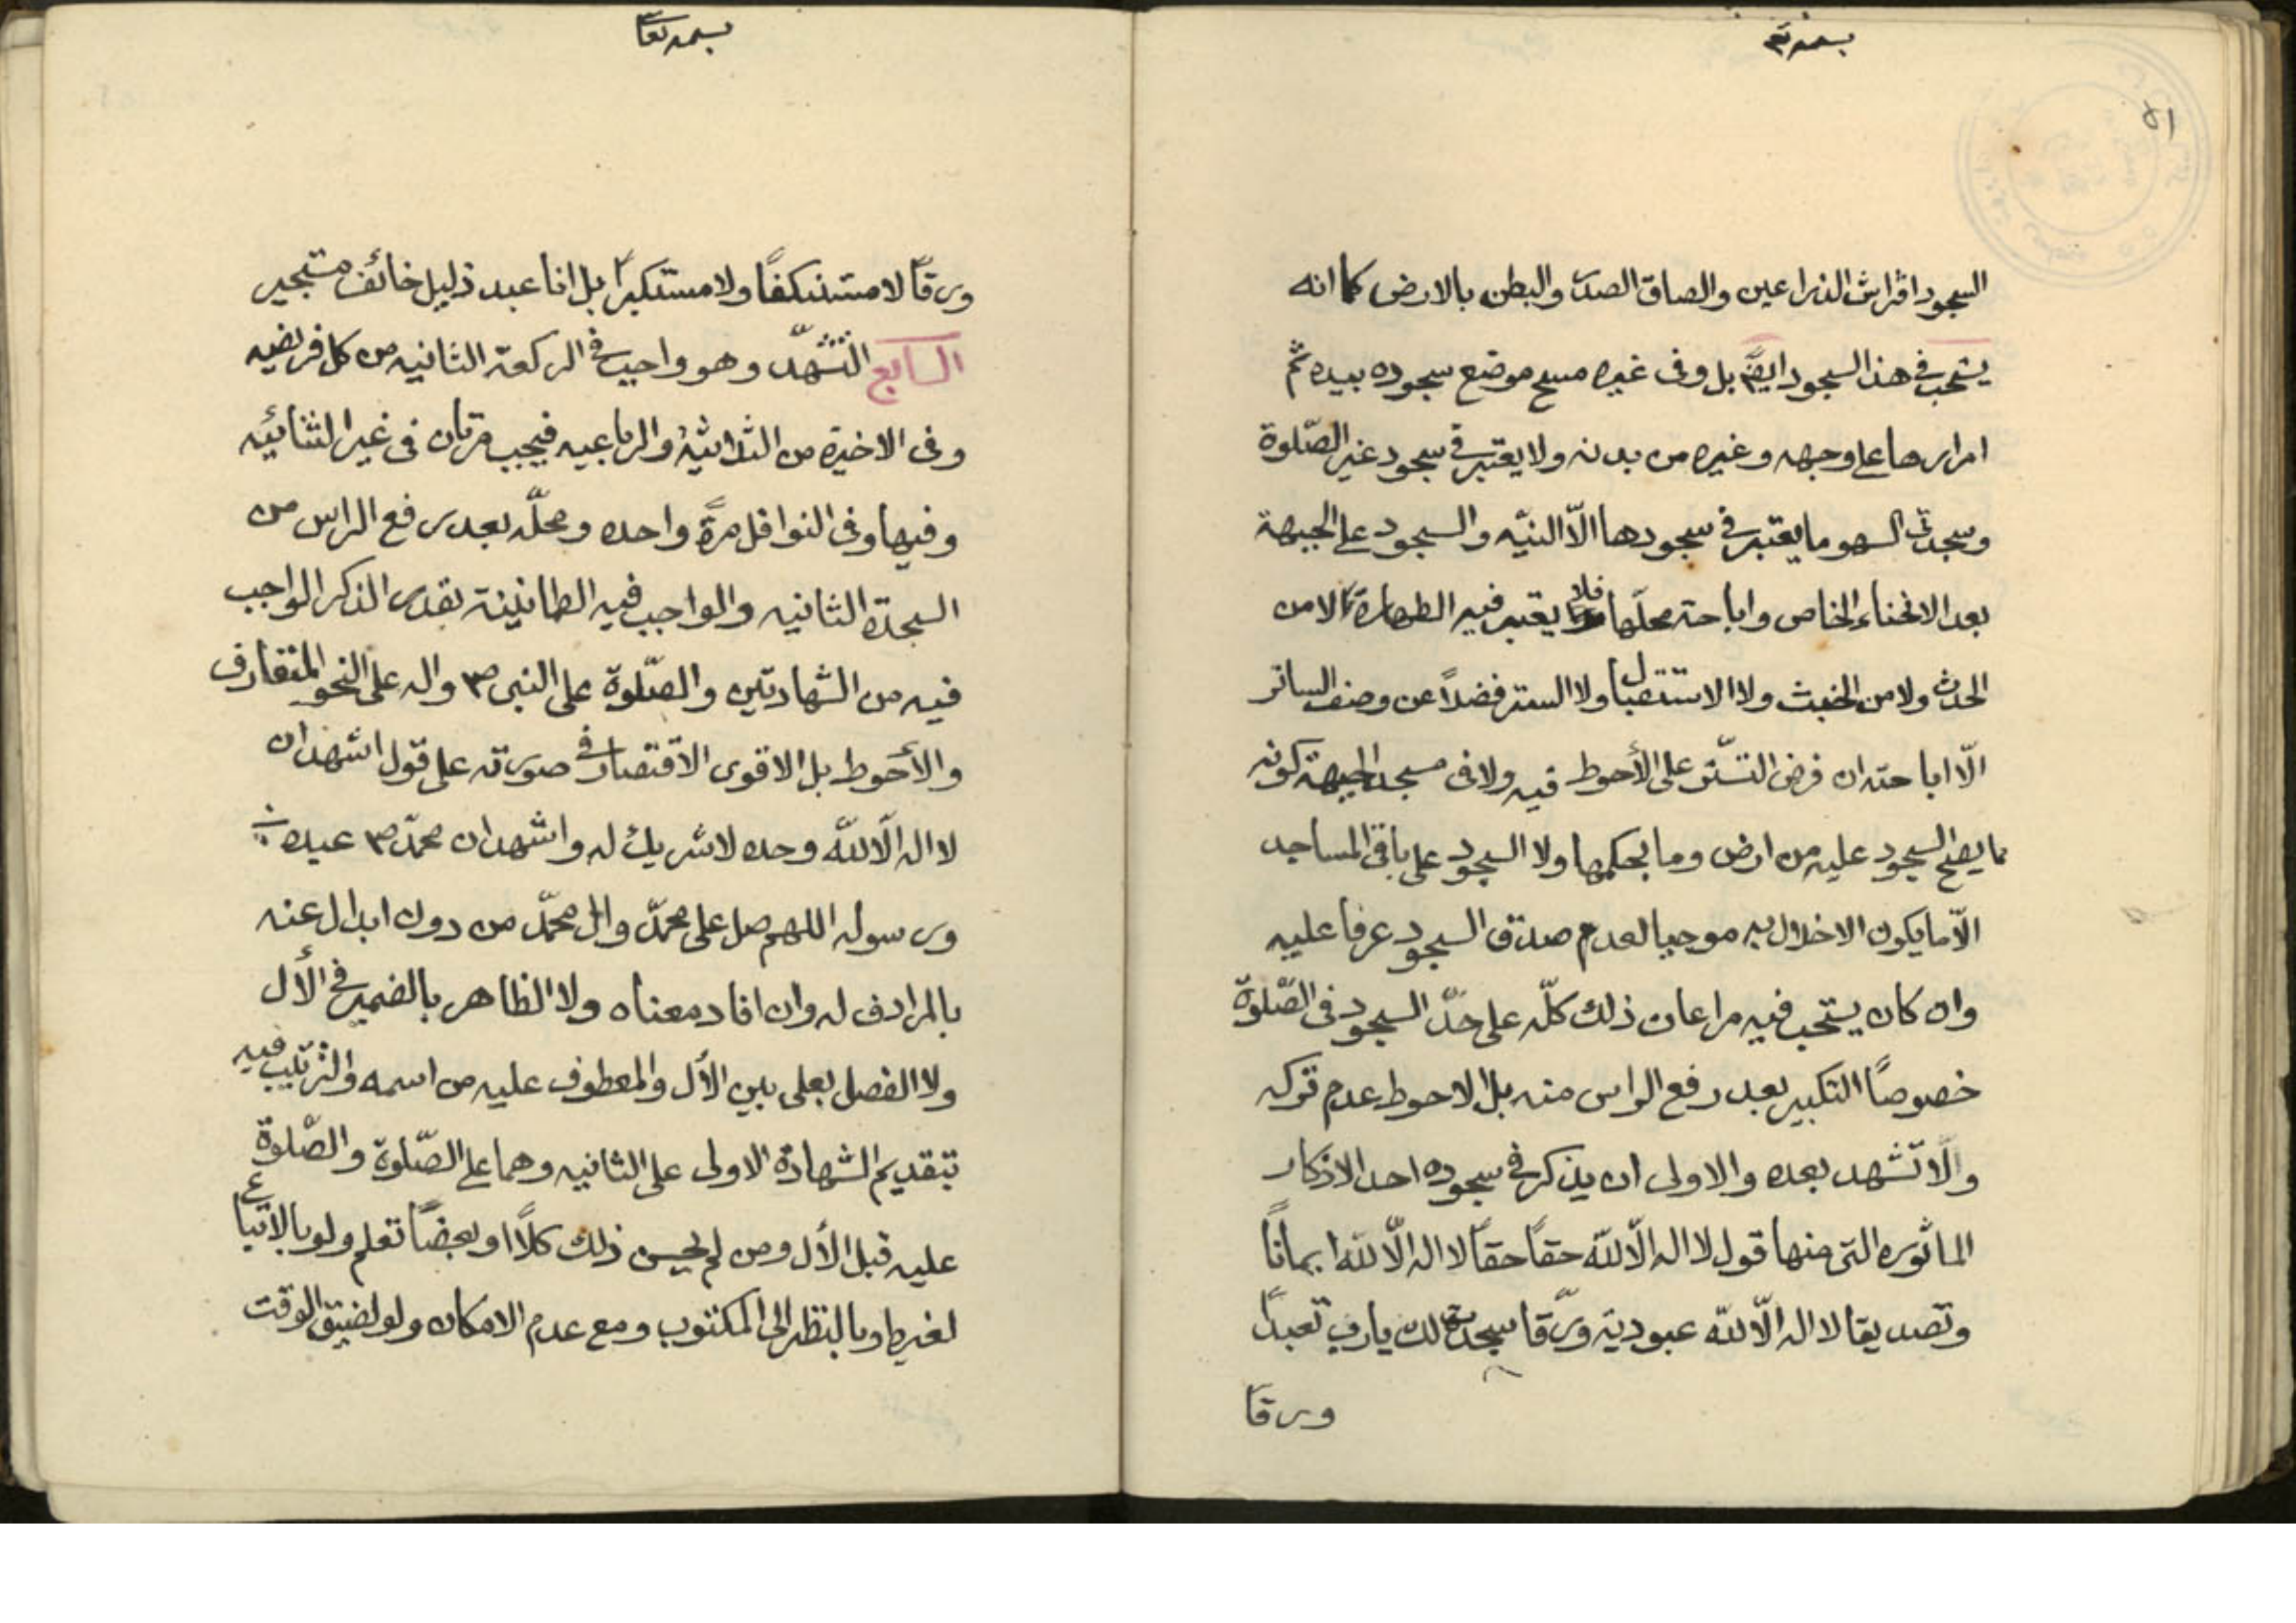 بسمه تع
٥١
السجود افتراش الذراعين والصاق الصدر والبطن بالارض كما انه
يستحب في هذا السجود ايضاً بل وفى غيره مسح موضع سجوده بيده ثم
امرارها على وجهه وغيره من بدنه ولا يعتبر في سجود غير الصّلوة
وسجدتى السهو ما يعتبر في سجودها الّا النيّه والسجود على الجبهة
بعد الانحناء الخاص واباحة محلّها فلا يعتبر فيه الطهارة لا من
الحدث ولا من الخبث ولا الاستقبال ولا الستر فضلاً عن وصف الساتر
الّا اباحته ان فرض التستّر على الأحوط فيه ولا فى مسجد الجبهة كونه
مما يصح السجود عليه من ارض وما بحكمها ولا السجود على باقى المساجد
الّا ما يكون الاخلال به موجبا لعدم صدق السجود عرفا عليه
وان كان يستحب فيه مراعات ذلك كلّه على حدّ السجود فى الصّلوة
خصوصاً التكبير بعد رفع الراس منه بل الاحوط عدم تركه
والّا تشهد بعده والاولى ان يذكر في سجوده احد الاذكار
الماثوره التى منها قول لا اله الّا اللّه حقاً حقاً لا اله الّا اللّه ايماناً
وتصديقا لا اله الّا اللّه عبودية ورّقا سجدت لك يا رب تعبداً
ورقاً
بسمه تعا
ورقاً لا مستنكفاً ولا مستكبراً بل انا عبد ذليل خائف مستجير
السابع التشهّد وهو واجب في الركعة الثانيه من كل فريضه
وفى الاخيرة من الثلاثيّة والرباعيه فيجب مرتان فى غير الثنائيّه
وفيها وفى النوافل مرةً واحده ومحلّه بعد رفع الراس من
السجدة الثانيه والواجب فيه الطمانينة بقدر الذكر الواجب
فيه من الشهادتين والصّلوة على النبى ص واله على النحو المتعارف
والأحوط بل الاقوى الاقتصار في صورته على قول اشهد ان
لا اله الّا اللّه وحده لا شريك له واشهد ان محمدّ ص عبده
ورسوله اللهم صل على محمدّ وال محمدّ من دون ابدال عنه
بالمرادف له وان افاد معناه ولا الظاهر بالضمير في الأل
ولا الفصل بعلى بين الأل والمعطوف عليه من اسمه والترتيب فيه
بتقديم الشهادة الاولى على الثانيه وهما على الصّلوة والصّلوة
عليه قبل الأل ومن لم يحسن ذلك كلّاً او بعضاً تعلم ولو بالاتباع
لغيره او بالنظر الى المكتوب ومع عدم الامكان ولو لضيق الوقت